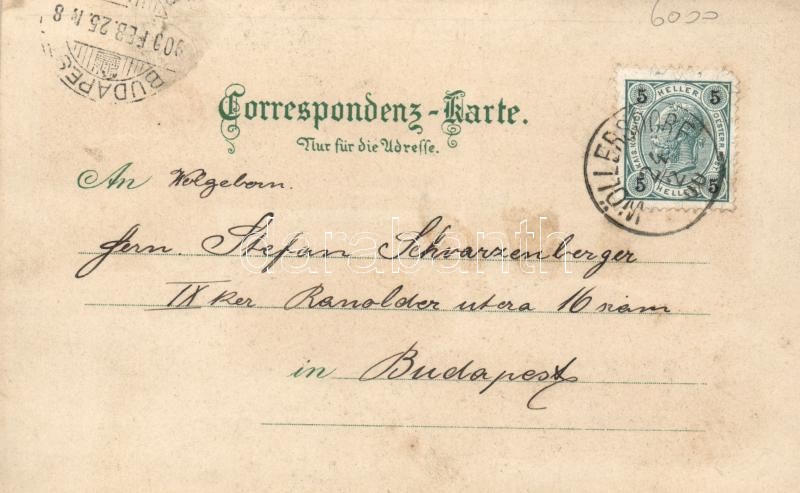 6000
BUDAPEST
900 FEB. 25. N 8
Correspondenz-Karte.
Nur für die Adresse.
5 HELLER 5
KAIS. KÖNIGL. OESTERR. POST
5 HELLER 5
MÖLLERSDORF
An Wolgeborn.
Hern. Stefan Schvarzenberger
IX ker Ranolder utcza 16 szam
in Budapest
darabanth